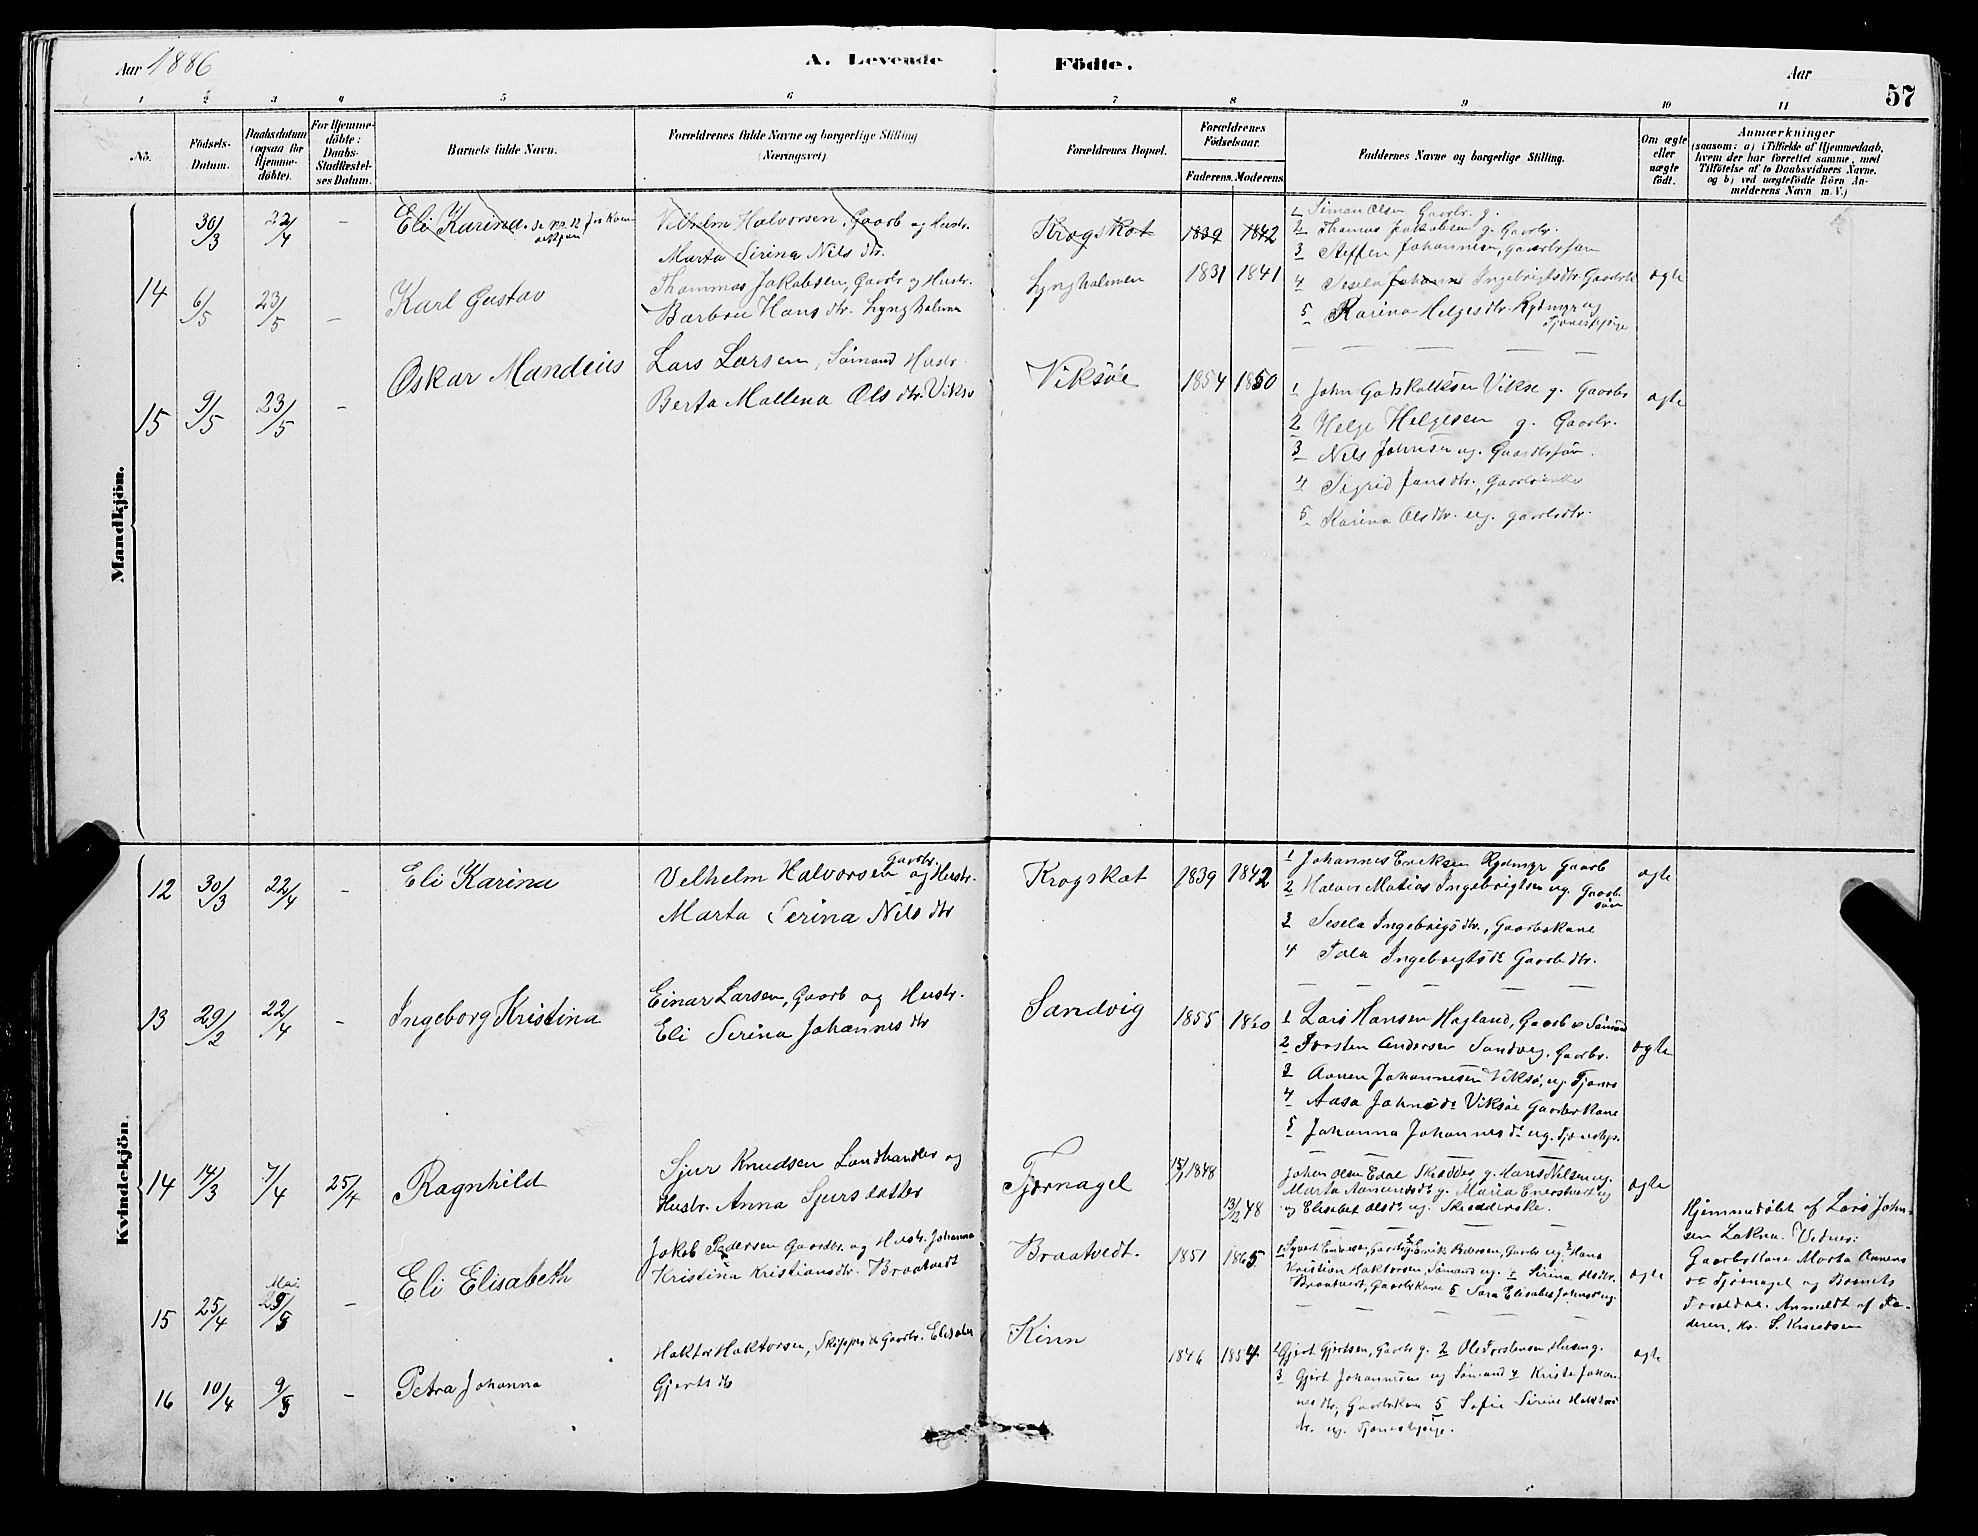 Aar 1886
A. Levende Födte.
Aar
57
1 2 3 4 5 6 7 8 9 10 11
No.
Födsels-Datum.
Daabsdatum (ogsaa for Hjemmedöbte).
For Hjemmedöbte: Daabs-Stadfæstelses Datum.
Barnets fulde Navn.
Forældrenes fulde Navne og borgerlige Stilling (Næringsvei)
Forældrenes Bopæl.
Forældrenes Födselsaar.
Faderens. Moderens.
Faddernes Navne og borgerlige Stilling.
Om ægte eller uægte födt.
Anmærkninger
(saasom: a) i Tilfælde af Hjemmedaab, hvem der har forrettet samme, med Tilföielse af to Daabsvidners Navne. og b) ved uægtefödte Börn Anmelderens Navn m.V.)
Mandkjön.
30/3 22/4 – Eli Karina. se No. 12 for Kvin-
Vilhelm Halvorsen, Gaarb og Hustr.
Marta Sirina Nilsdtr.
Krogskot 1839 1842
1 Simon Olsen Gaarbr. g.
2 Thomas Jakobsen g. Gaarbr.
3 Steffen Johannesen, Gaarbrsøn
14 6/5 23/5 – Karl Gustav
Thommas Jakobsen, Gaarbr og Hustr.
Barbou Hansdtr. Lyngholmen
Lyngholmen 1831 1841
4 Sesela Ingebrigtsdtr. Gaarbr
5 Karina Helgesdtr. Rydmyr ug
Tjenestpige
ægte
15 9/5 23/5 – Oskar Mandeius
Lars Larsen, Sömand Hustr.
Berta Mallena Olsdtr. Viksø
Viksöe 1854 1850
1 John Godskalksen Vikse g. Gaarbr
2 Helge Helgesen g. Gaarbr.
3 Nils Johnsen ug. Gaardbrsön.
4 Sigrid Jansdtr., Gaarbrenke
5 Karina Olsdtr. ug. gaarbrdtr.
ægte
Kvindekjön.
12 30/3 22/4 – Eli Karina
Velhelm Halvorsen Gaarbr. og Hustr.
Marta Serina Nilsdtr
Krogskot 1839 1842
1 Johannes Eriksen Rydmyr Gaarb
2 Halvor Matias Ingebrigtsen ug. Gaarb. sön
3 Sesela Ingebrigsdtr., Gaarbskone
4 Tala Ingebrigtsdr Gaarbdtr.
ægte
13 29/2 22/4 – Ingeborg Kristina
Einar Larsen, Gaarb og Hustr.
Eli Serina Johannesdtr
Sandvig 1855 1860
1 Lars Hansen Hagland, Gaarb & Sömand
2 Torsten Andersen Sandvig. Gaarbr.
3 Aanen Johannesen Viksö, ug. Tjenes
4 Aasa Johnsdr Viksöe Gaarbrkone
5 Johanna Johannesdr ug. Tjenestp.
ægte
14 14/3 7/4 25/4 Ragnhild
Sjur Knudsen Landhandler og
Hustr. Anna Sjursdatter
Tjernagel 1848
13/2 48
Johan Olsen Edal Skrædder, g. Hans Nilsen ug.
og Elisabet Olsdr ug. Skrædderske.
ægte
Hjemmedöbt af Lars John-
sen Lokna. Vidner:
Gaarbkone Marta Aanens
dr Tjernagel og Barnets
Foreldre. Anmeldt af Fa-
deren, Kr. S. Knudsen
15 25/4 Mai 23/5 – Eli Elisabeth
Jakob Pedersen Gaardbr. og Hustr. Johanna
Kristina Kristiansdtr. Braatvedt
Braatvedt. 1851 1865
1 Syvert Enersen, Gaarb 2 Erik Pedersen, Gaarb ug. 3 Hans
Kristian Haktorsen, Sömand ug. 4 Sirina Olsdtr.
Braatvedt, Gaarbkone 5 Sara Elisabet Johnsdr ug.
ægte
16 10/4 9/5 – Petra Johanna
Haktor Haktorsen, Skipper & Gaarbr. Elisabet
Gjertsdtr
Kinn 1846 1854
1 Gjert Gjertsen, Gaarb g. 2 Ole Torstensen Husm g.
3 Gjert Johannesen ug Sömand 4 Kriste Johan-
nesdtr, Gaarbkone 5 Sofie Sirine Haktors
dr. ug. Tjenestpige.
ægte